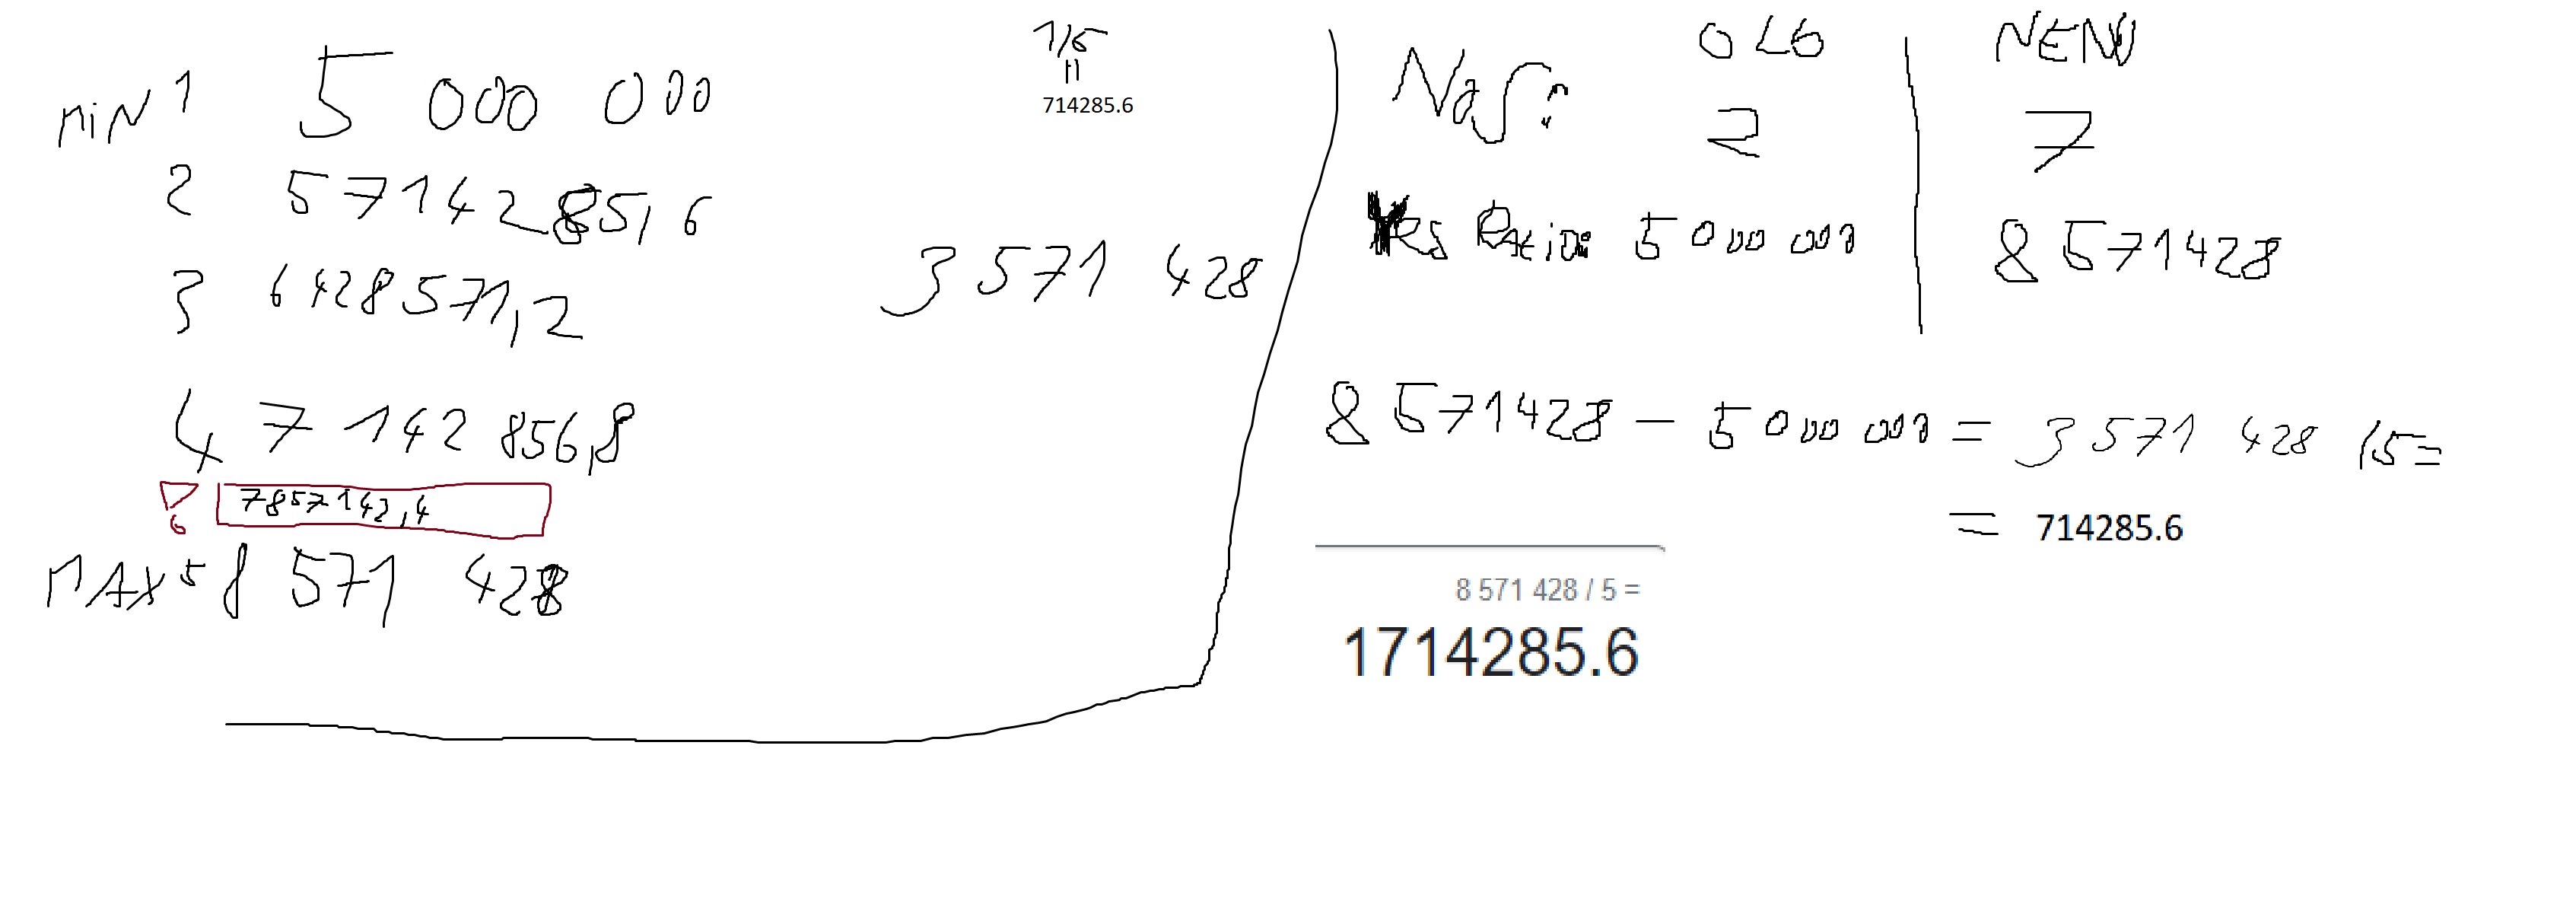 MIN 1 5 000 000
2 5714285,6
3 6428571,2
4 7 142 856,8
6 7857142,4
MAX 5 8 571 428
1/5
=
714285.6
3 571 428
OLG NENU
2 7
5 000 000 8 571428
8 571428 - 5 000 000 = 3 571 428 /5=
= 714285.6
8 571 428 / 5 =
1714285.6